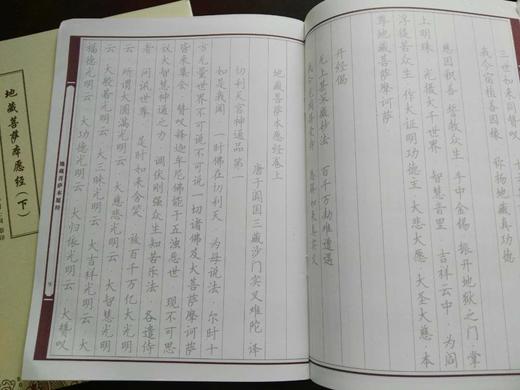 我今宿植善因缘 称扬地藏真功德
慈因积善·誓救众生·手中金锡·振开地狱之门·掌
上明珠·光摄大千世界·智慧音里·吉祥云中·为阎
浮提苦众生·作大证明功德主·大悲大愿·大圣大慈·本
尊地藏菩萨摩诃萨
开经偈
无上甚深微妙法 百千万劫难遭遇
我今见闻得受持 愿解如来真实义
地藏菩萨本愿经卷上
唐于阗国三藏沙门实叉难陀 译
忉利天宫神通品 第一
如是我闻·一时佛在忉利天·为母说法·尔时十
方无量世界不可说不可说一切诸佛及大菩萨摩诃萨
皆来集会·赞叹释迦牟尼佛能于五浊恶世·现不可思
议大智慧神通之力·调伏刚强众生知苦乐法·各遣侍
者·问讯世尊·是时如来含笑·放百千万亿大光明
云·所谓大圆满光明云·大慈悲光明云·大智慧光明
云·大般若光明云·大三昧光明云·大吉祥光明云·大
福德光明云·大功德光明云·大归依光明云·大赞叹
地藏菩萨本愿经
地藏菩萨本愿经（下）